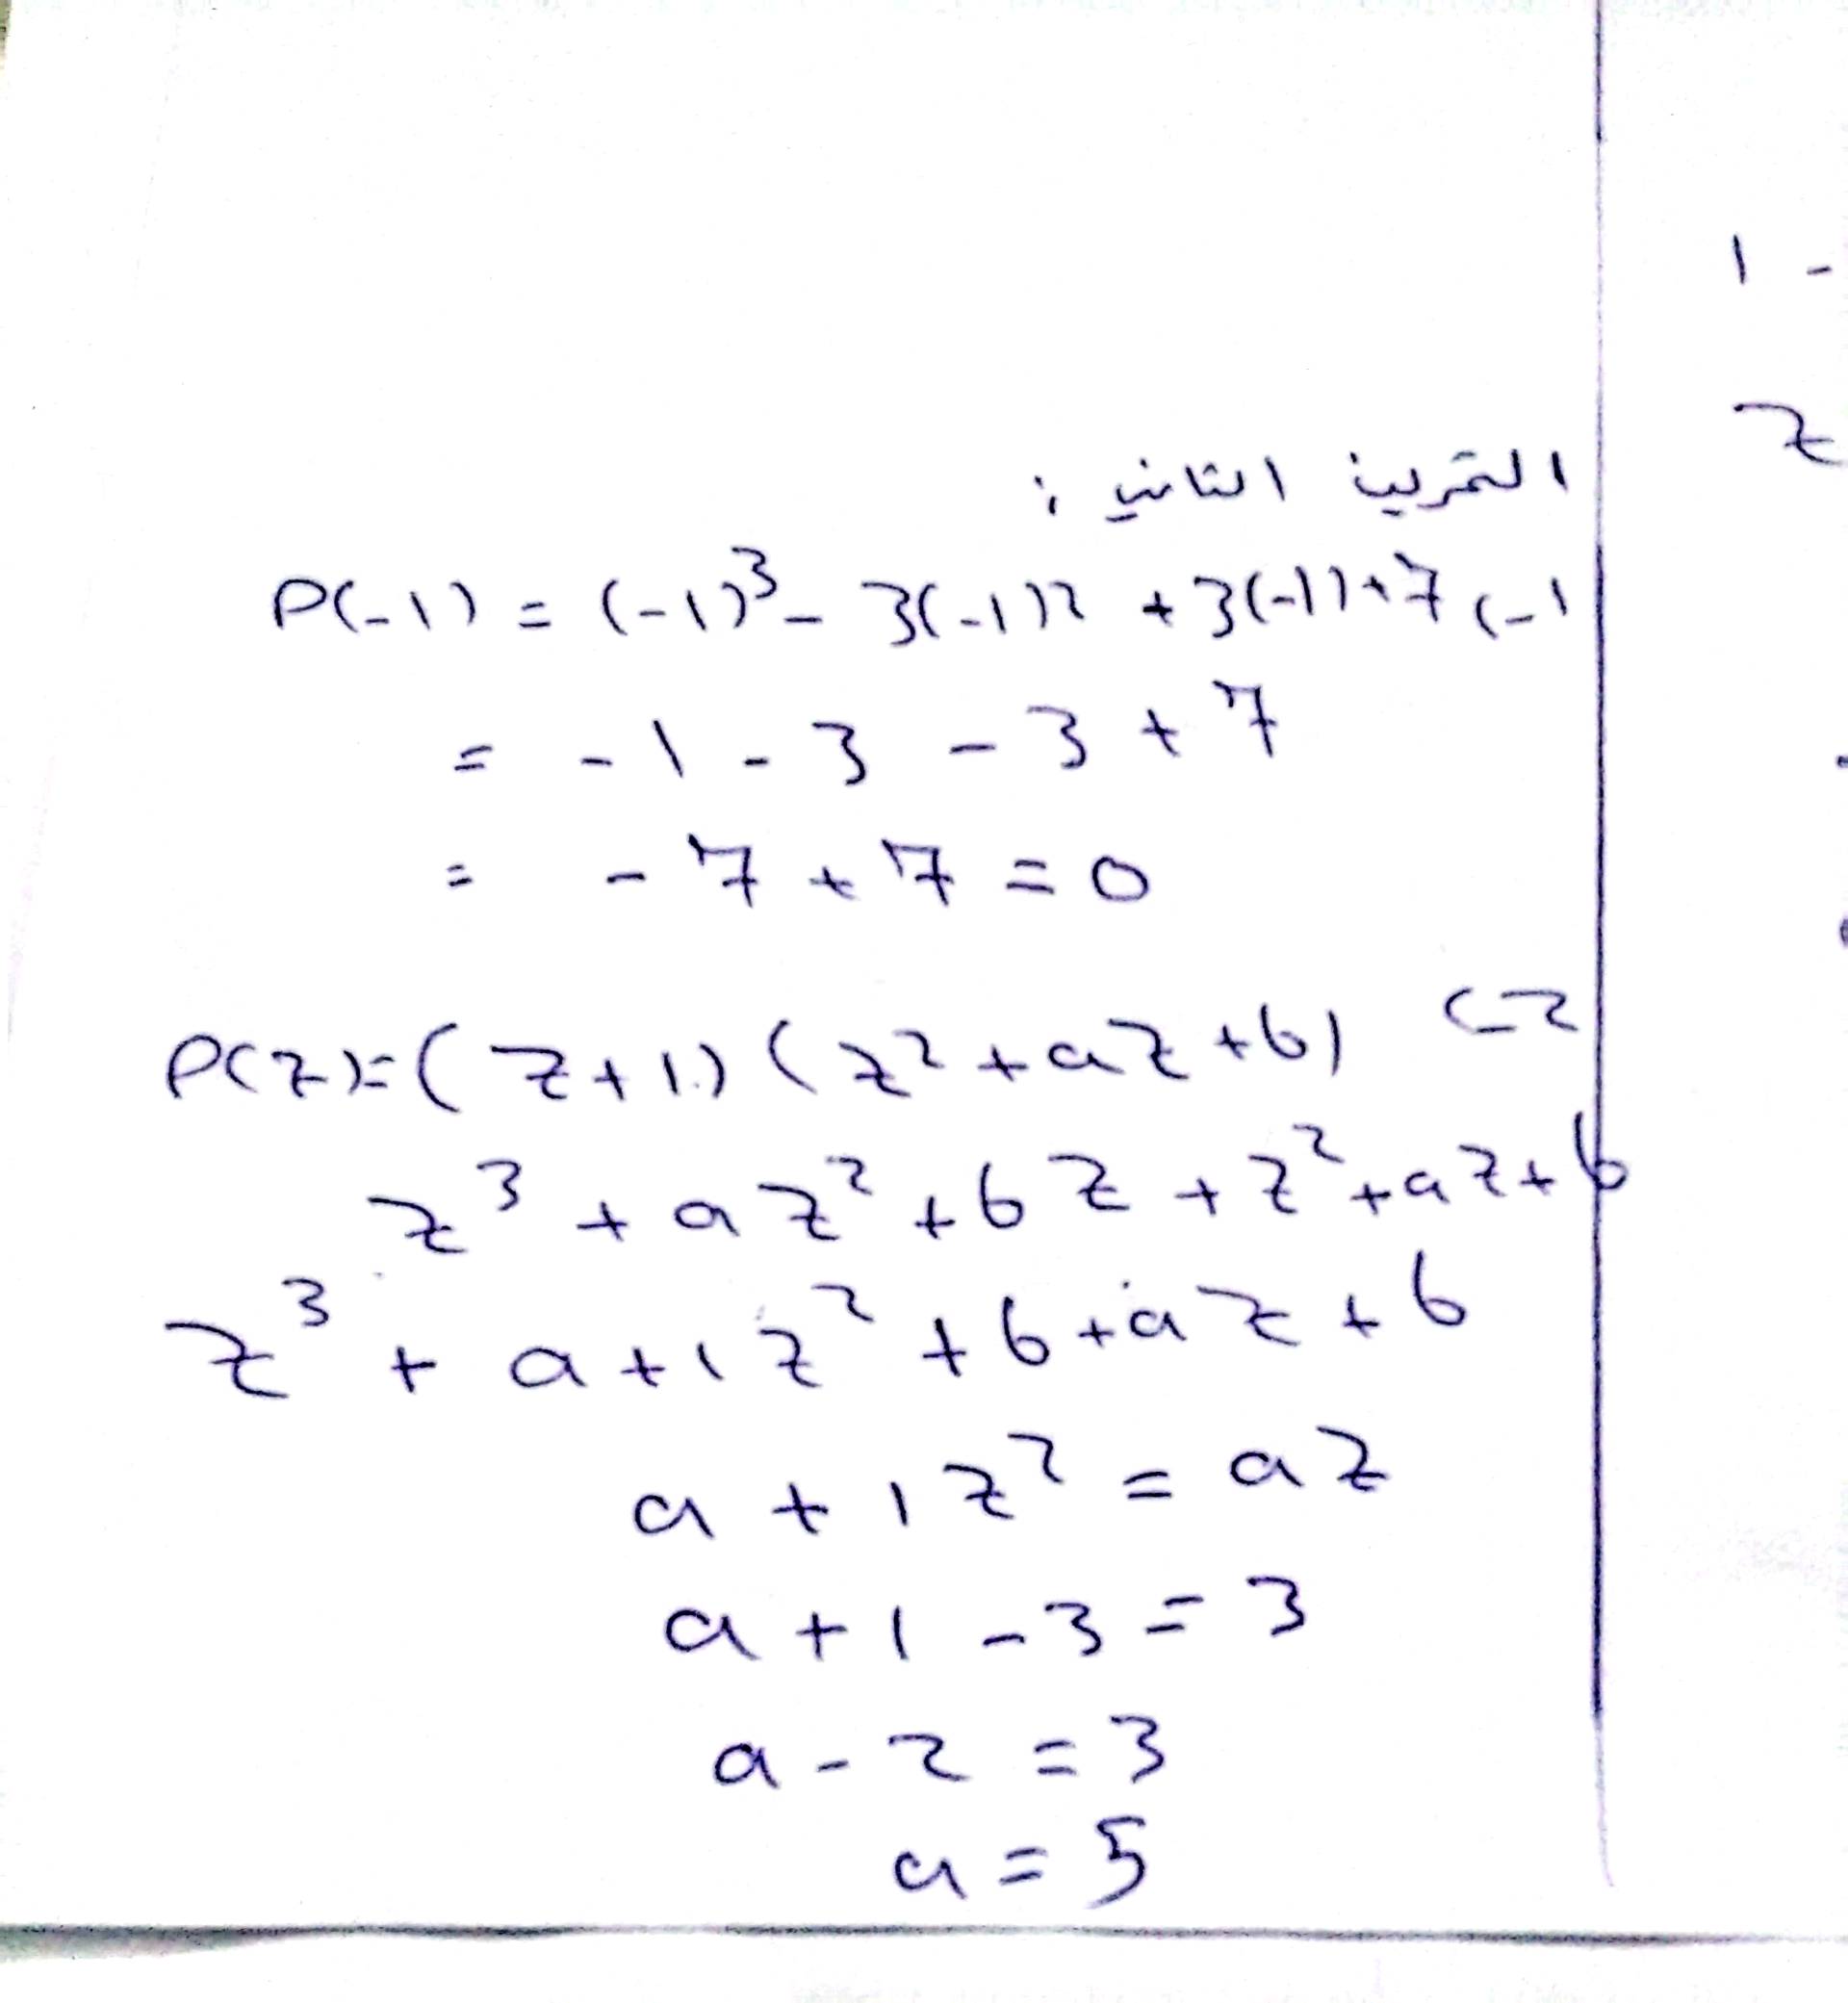 1 -
z
التمرين الثاني :
P(-1) = (-1)³ - 3(-1)2 + 3(-1) + 7 (-1
= -1 - 3 - 3 + 7
= -7 + 7 = 0
P(z) = (z+1) (z² + az + b) (-2
z³ + az² + bz + z² + az + b
z³ + a + 1z² + b + az + b
a + 1z² = az
a + 1 - 3 = 3
a - 2 = 3
a = 5